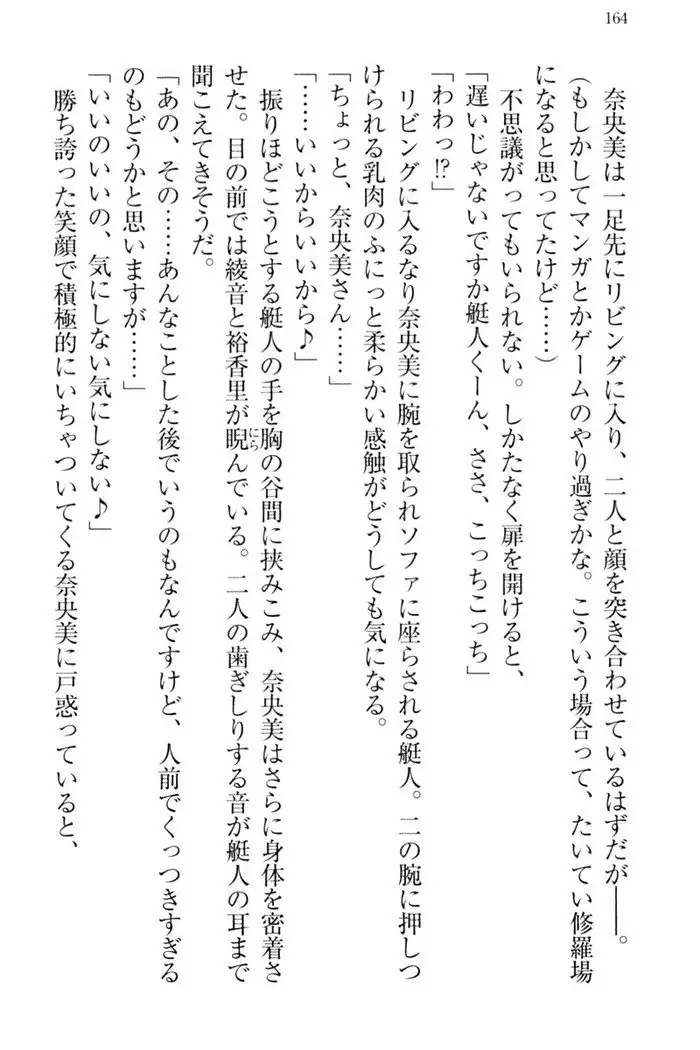 164
奈央美は一足先にリビングに入り、二人と顔を突き合わせているはずだが――。
（もしかしてマンガとかゲームのやり過ぎかな。こういう場合って、たいてい修羅場
になると思ってたけど……）
不思議がってもいられない。しかたなく扉を開けると、
「遅いじゃないですか艇人くーん、ささ、こっちこっち」
「わわっ!?」
リビングに入るなり奈央美に腕を取られソファに座らされる艇人。二の腕に押しつ
けられる乳肉のふにっと柔らかい感触がどうしても気になる。
「ちょっと、奈央美さん……」
「……いいからいいから♪」
振りほどこうとする艇人の手を胸の谷間に挟みこみ、奈央美はさらに身体を密着さ
せた。目の前では綾音と裕香里が睨んでいる。二人の歯ぎしりする音が艇人の耳まで
にら
聞こえてきそうだ。
「あの、その……あんなことした後でいうのもなんですけど、人前でくっつきすぎる
のもどうかと思いますが……」
「いいのいいの、気にしない気にしない♪」
勝ち誇った笑顔で積極的にいちゃついてくる奈央美に戸惑っていると、